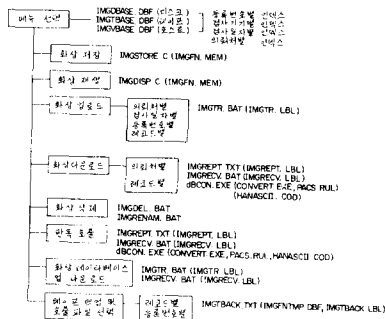 메뉴 선택
IMGDBASE DBF (디스크)
IMGTBASE DBF (테이프)
IMGVBASE DBF (호스트)
등록번호별 인덱스
검사기기별 인덱스
검사일자별 인덱스
의뢰처별 인덱스
화상 저장 IMGSTORE C (IMGFN. MEM)
화상 재생 IMGDISP C (IMGFN. MEM)
화상 업로드
의뢰처별
검사일자별
등록번호별
레코드별
IMGTR. BAT (IMGTR. LBL)
화상다운로드
의뢰처별
레코드별
IMGREPT TXT (IMGREPT. LBL)
IMGRECV. BAT (IMGRECV. LBL)
dBCON. EXE (CONVERT EXE, PACS RUL)
HANASCII. COD)
화상 삭제
IMGDEL. BAT
IMGRENAM. BAT
판독 모듈
IMGREPT TXT (IMGREPT. LBL)
IMGRECV. BAT (IMGRECV. LBL)
dBCON. EXE (CONVERT EXE, PACS. RUL, HANASCII. COD)
화상 데이타베이스
업 다운로드
IMGTR BAT (IMGTR LBL)
IMGRECV BAT (IMGRECV. LBL)
테이프 백업 및
선택
레코드별
등록번호별
IMGTBACK TXT (IMGFNTMP DBF, IMGTBACK LBL)